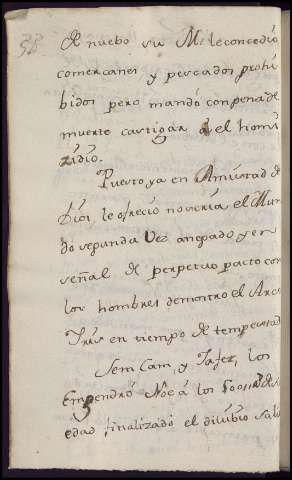 De nuebo su M. le concedió
comer canes y pescados prohi
bidos pero mandó con pena de
muerte castigar el homi
zidio.
Puerto, ya en Amistad de
Dios, le ofreció no vería el Mun
do segunda vez anegado y en
señal de perpetuo pacto con
los hombres demostro el Arco
Iris en tiempo de tempestad
Sem Cam, y Jafet, los
Empendró Noe á los 500
edad finalizado el dilubio